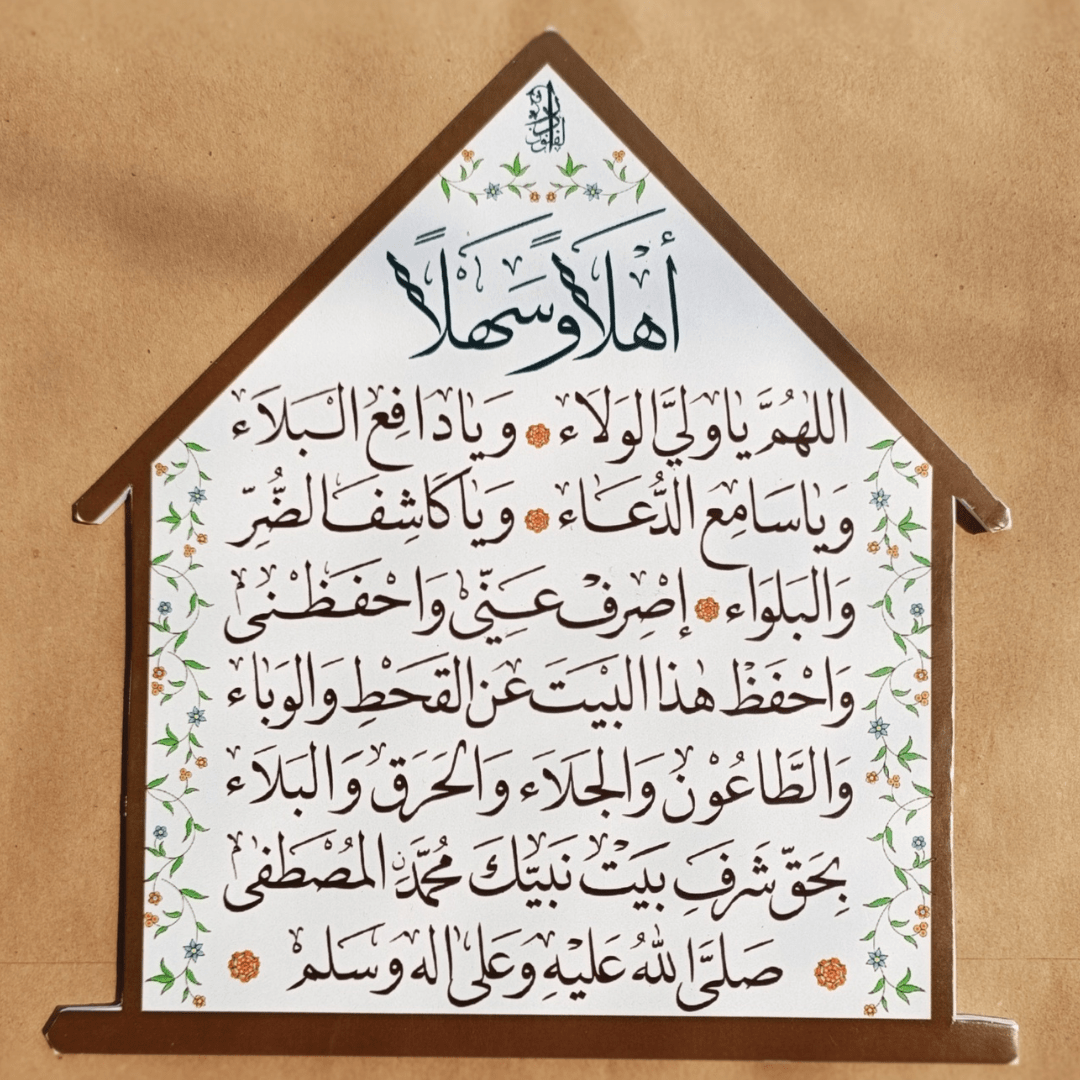 أهْلاً وَّسَهْلاً
اللهُمَّ يا وليَّ الوَلَاء وَيَادَافِع البَلَاء
وَيَاسَامِع الدُّعَاء وَيَاكَاشِفَ الضُّرِّ
وَالبَلوَاء إصْرِفْ عَنِّي وَاحْفَظْنى
وَاحْفَظْ هٰذا البَيْتَ عَن القَحَطِ وَالوَباء
وَالطَّاعُوْن وَالجَلَاء وَالحَرَق وَالبَلَاء
بِحَقّ شَرفِ بَيَتْ نَبيّكَ مُحَمَّدِنِ المُصْطَفٰى
صَلىَّ اللهُ عَليْهِ وَعَلى اله وَسَلم